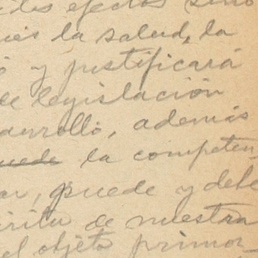 les efectos sino
la salud, la
y justificará
de legislación
arrollo, además
puede la competen-
ar, puede y debe
ritu de nuestra
el objeto primor-